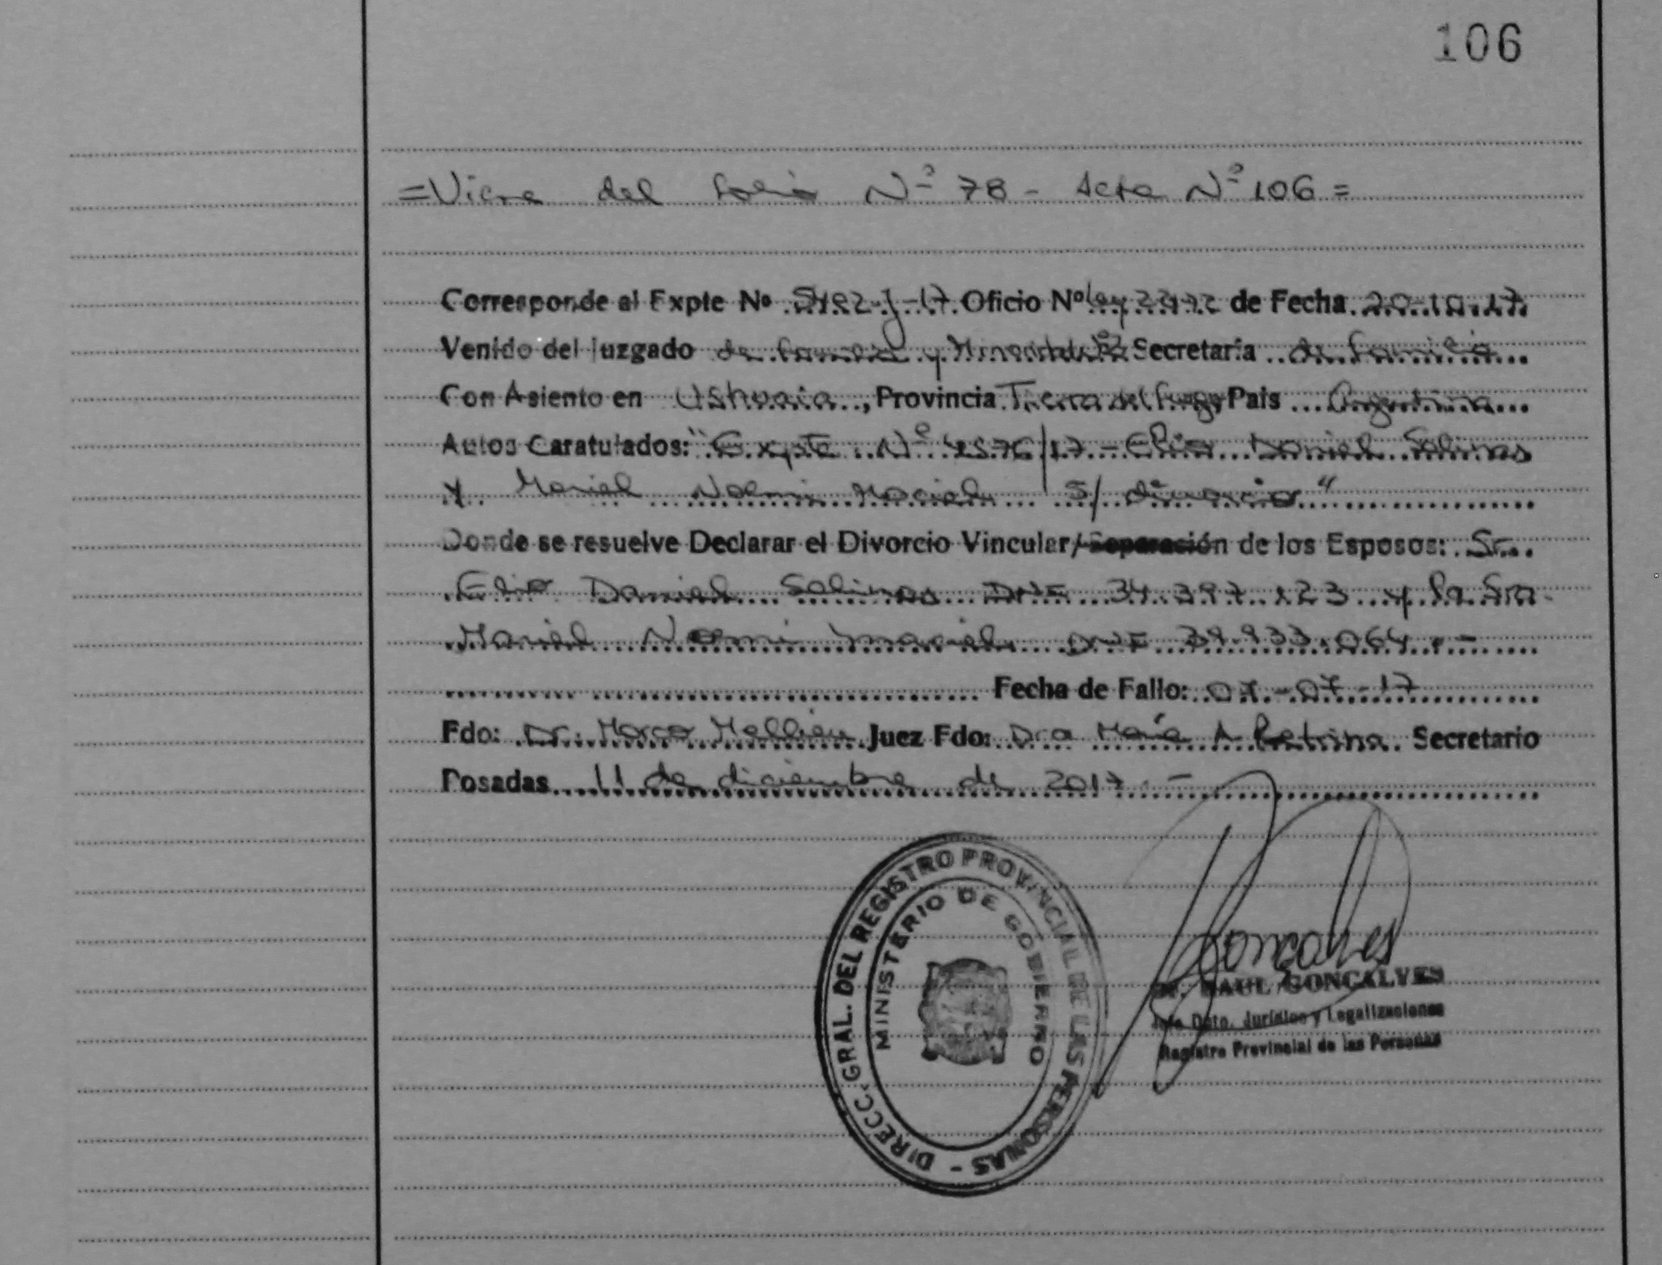 106
=Viene del Folio Nº 78 - Acta Nº 106=
Corresponde al Expte Nº 5182-J-17 Oficio Nº Ley 22172 de Fecha 20-10-17
Venido del Juzgado de Familia y Minoridad Nº Secretaria de Familia
Con Asiento en Ushuaia, Provincia Tierra del Fuego Pais Argentina
Autos Caratulados: "Expte Nº /17 - Elio Daniel Salinas
y Mariel Noemi Maciel S/ divorcio"
Donde se resuelve Declarar el Divorcio Vincular/Separación de los Esposos: Sr.
Elio Daniel Salinas DNI 34.397.123 y la Sra
Mariel Noemi Maciel DNI 39.933.064.-
Fecha de Fallo: 07-07-17
Fdo: Dr. Marco Juez Fdo: Dra María A Secretario
Posadas 11 de diciembre de 2017.-
DIRECC. GRAL. DEL REGISTRO PROVINCIAL DE LAS PERSONAS -
MINISTERIO DE GOBIERNO
Goncalves
Dr. RAUL GONCALVES
Jefe Dpto. Jurídico y Legalizaciones
Registro Provincial de las Personas